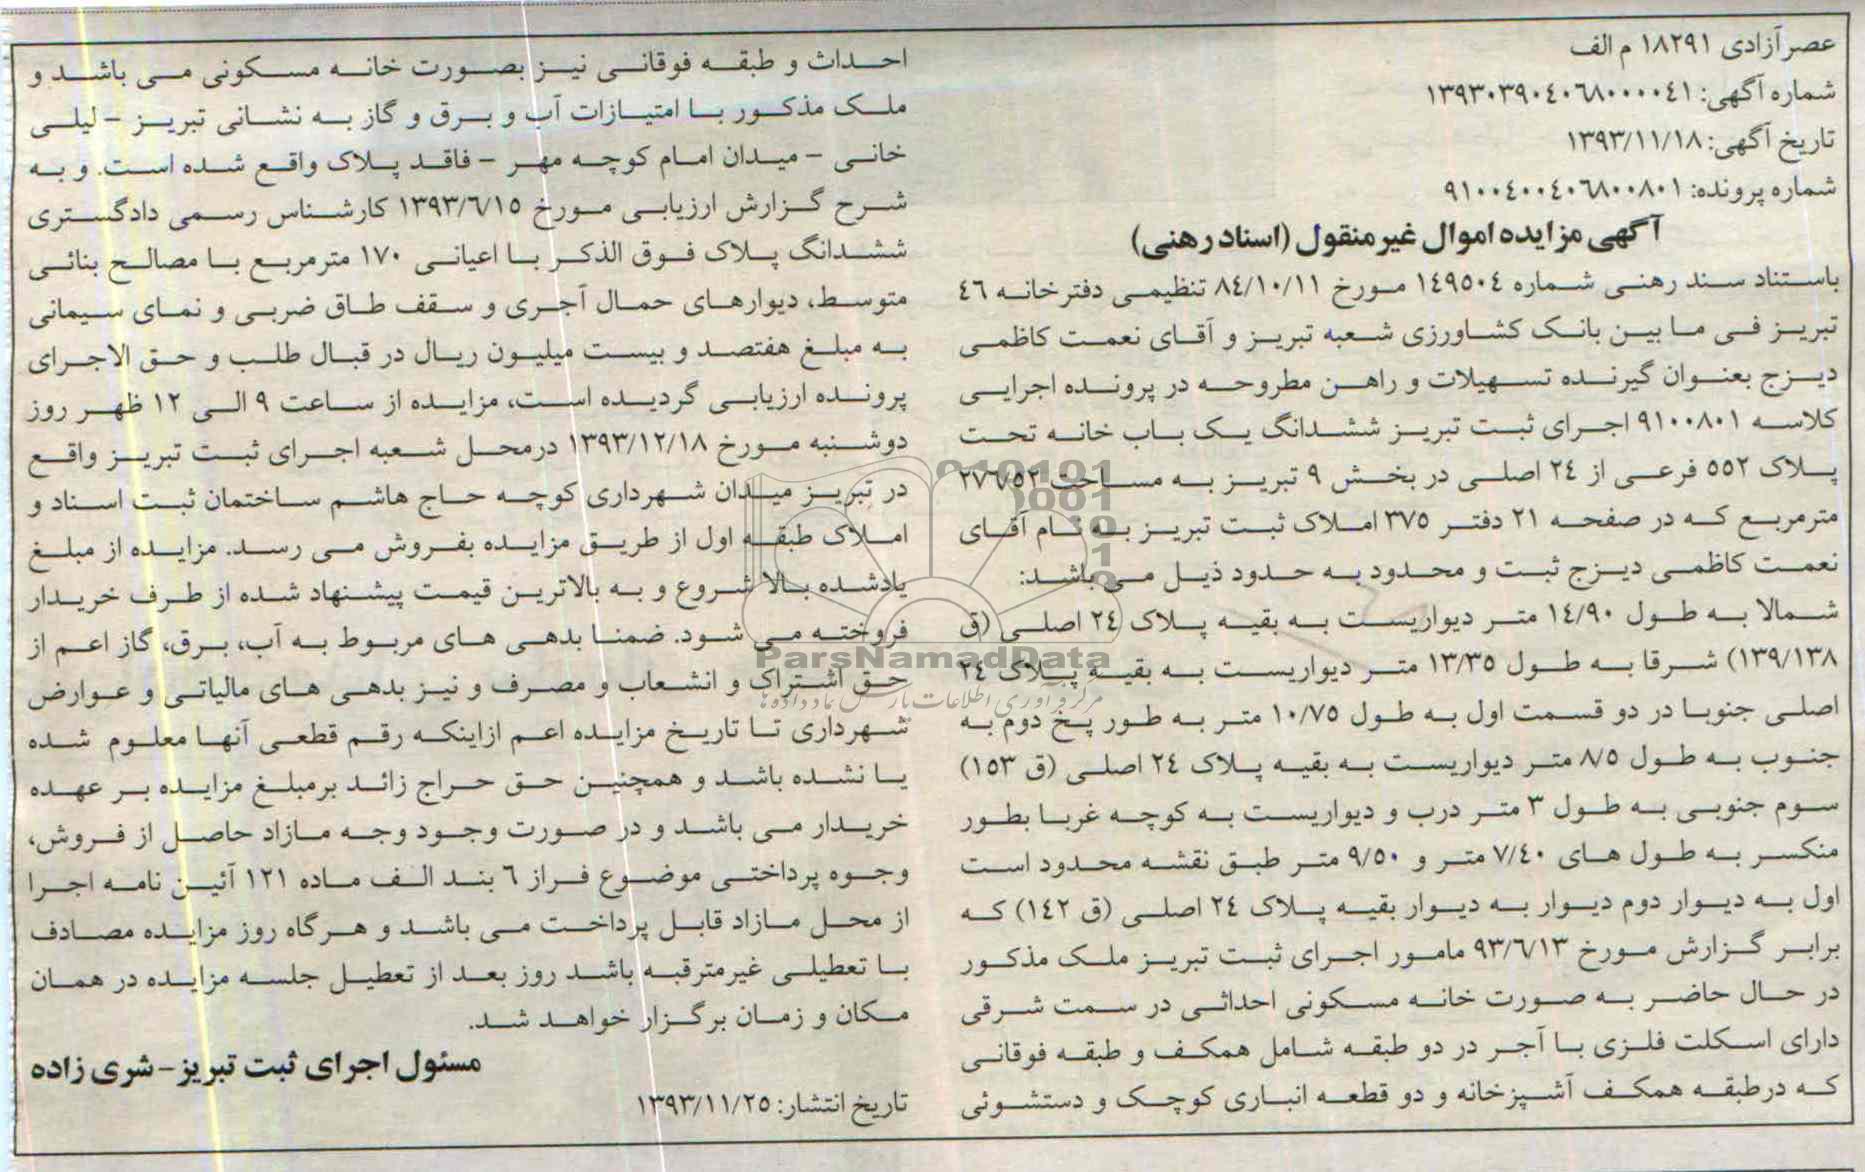 عصرآزادی ۱۸۲۹۱ م الف
شماره آگهی: ۱۳۹۳۰۳۹۰٤۰٦۸۰۰۰۰٤۱
تاریخ آگهی: ۱۳۹۳/۱۱/۱۸
شماره پرونده: ۹۱۰۰٤۰۰٤۰٦۸۰۰۸۰۱
آگهی مزایده اموال غیرمنقول (اسناد رهنی)
باستناد سند رهنی شماره ۱٤۹۵۰٤ مورخ ۸٤/۱۰/۱۱ تنظیمی دفترخانه ٤٦
تبریز فی ما بین بانک کشاورزی شعبه تبریز و آقای نعمت کاظمی
دیزج بعنوان گیرنده تسهیلات و راهن مطروحه در پرونده اجرایی
کلاسه ۹۱۰۰۸۰۱ اجرای ثبت تبریز ششدانگ یک باب خانه تحت
پلاک ۵۵۲ فرعی از ۲٤ اصلی در بخش ۹ تبریز به مساحت ۲۷٦/۵۲
مترمربع که در صفحه ۲۱ دفتر ۳۷۵ املاک ثبت تبریز به نام آقای
نعمت کاظمی دیزج ثبت و محدود به حدود ذیل می باشد:
شمالا به طول ۱٤/۹۰ متر دیواریست به بقیه پلاک ۲٤ اصلی (ق
۱۳۹/۱۳۸) شرقا به طول ۱۳/۳۵ متر دیواریست به بقیه پلاک ۲٤
اصلی جنوبا در دو قسمت اول به طول ۱۰/۷۵ متر به طور پخ دوم به
جنوب به طول ۸/۵ متر دیواریست به بقیه پلاک ۲٤ اصلی (ق ۱۵۳)
سوم جنوبی به طول ۳ متر درب و دیواریست به کوچه غربا بطور
منکسر به طول های ۷/٤۰ متر و ۹/۵۰ متر طبق نقشه محدود است
اول به دیوار دوم دیوار به دیوار بقیه پلاک ۲٤ اصلی (ق ۱٤۲) که
برابر گزارش مورخ ۹۳/٦/۱۳ مامور اجرای ثبت تبریز ملک مذکور
در حال حاضر به صورت خانه مسکونی احداثی در سمت شرقی
دارای اسکلت فلزی با آجر در دو طبقه شامل همکف و طبقه فوقانی
که درطبقه همکف آشپزخانه و دو قطعه انباری کوچک و دستشوئی
احداث و طبقه فوقانی نیز بصورت خانه مسکونی می باشد و
ملک مذکور با امتیازات آب و برق و گاز به نشانی تبریز - لیلی
خانی - میدان امام کوچه مهر - فاقد پلاک واقع شده است. و به
شرح گزارش ارزیابی مورخ ۱۳۹۳/٦/۱۵ کارشناس رسمی دادگستری
ششدانگ پلاک فوق الذکر با اعیانی ۱۷۰ مترمربع با مصالح بنائی
متوسط، دیوارهای حمال آجری و سقف طاق ضربی و نمای سیمانی
به مبلغ هفتصد و بیست میلیون ریال در قبال طلب و حق الاجرای
پرونده ارزیابی گردیده است، مزایده از ساعت ۹ الی ۱۲ ظهر روز
دوشنبه مورخ ۱۳۹۳/۱۲/۱۸ درمحل شعبه اجرای ثبت تبریز واقع
در تبریز میدان شهرداری کوچه حاج هاشم ساختمان ثبت اسناد و
املاک طبقه اول از طریق مزایده بفروش می رسد. مزایده از مبلغ
یادشده بالا شروع و به بالاترین قیمت پیشنهاد شده از طرف خریدار
فروخته می شود. ضمنا بدهی های مربوط به آب، برق، گاز اعم از
حق اشتراک و انشعاب و مصرف و نیز بدهی های مالیاتی و عوارض
شهرداری تا تاریخ مزایده اعم ازاینکه رقم قطعی آنها معلوم شده
یا نشده باشد و همچنین حق حراج زائد برمبلغ مزایده بر عهده
خریدار می باشد و در صورت وجود وجه مازاد حاصل از فروش،
وجوه پرداختی موضوع فراز ٦ بند الف ماده ۱۲۱ آئین نامه اجرا
از محل مازاد قابل پرداخت می باشد و هرگاه روز مزایده مصادف
با تعطیلی غیرمترقبه باشد روز بعد از تعطیل جلسه مزایده در همان
مکان و زمان برگزار خواهد شد.
مسئول اجرای ثبت تبریز- شری زاده
تاریخ انتشار: ۱۳۹۳/۱۱/۲۵
ParsNamadData
مرکز فرآوری اطلاعات پارس نماد داده ها